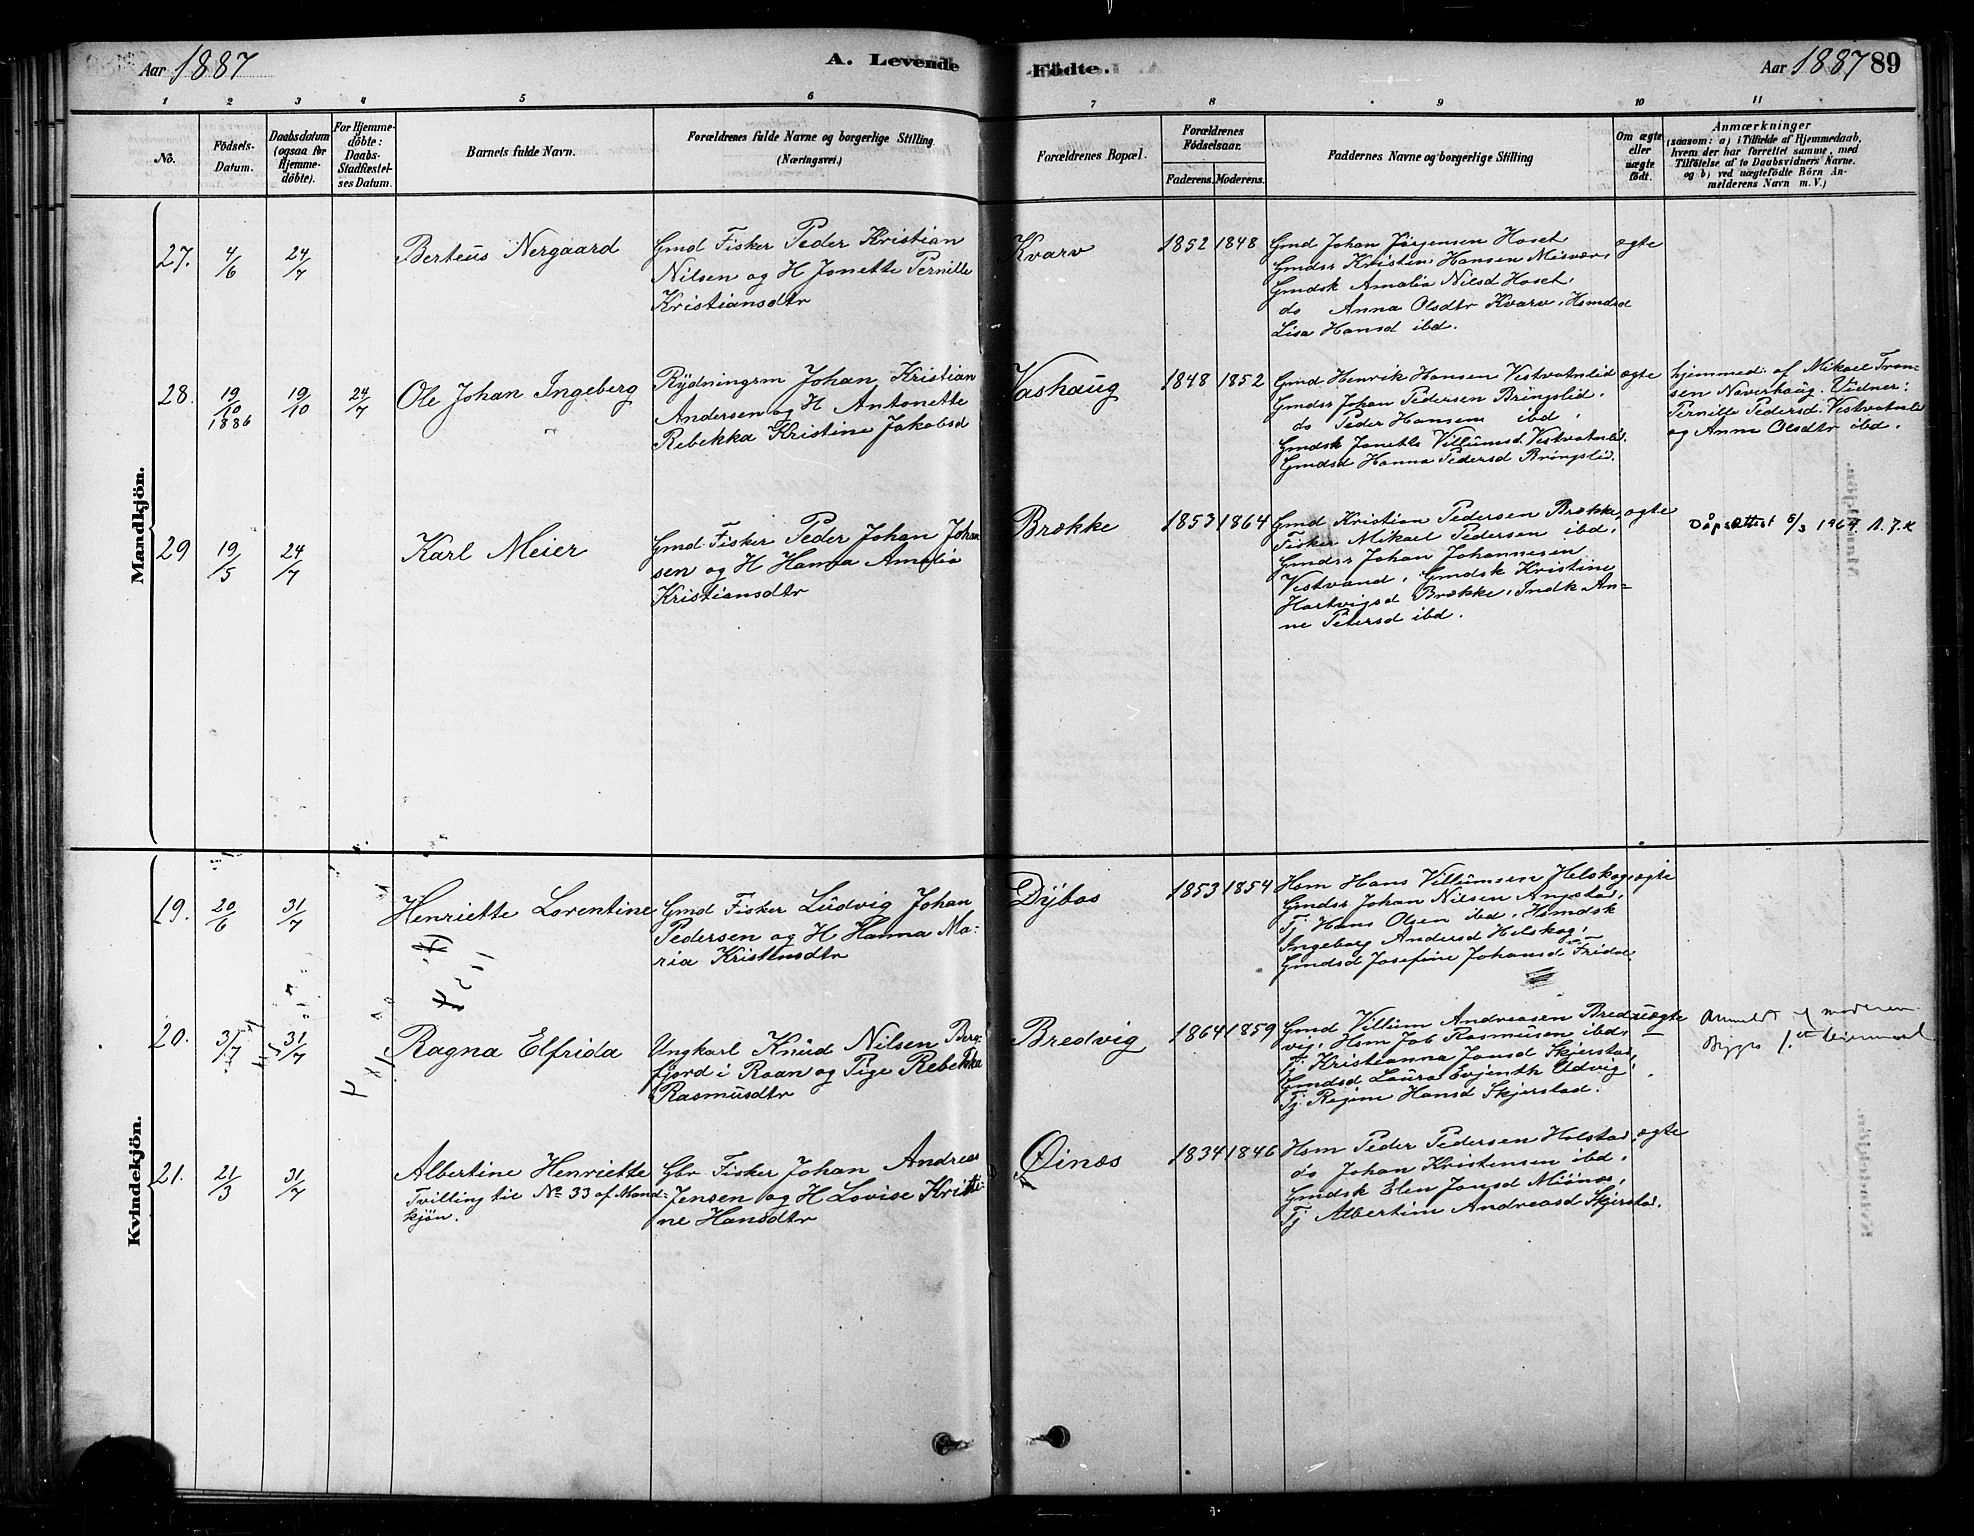 Aar 1887
A. Levende
Födte.
Aar 1887 89
1 2 3 4 5 6 7 8 9 10 11
No.
Födsels-
Datum.
Daabsdatum
(ogsaa for
Hjemme-
döbte).
For Hjemme-
döbte:
Daabs-
Stadfæstel-
ses Datum.
Barnets fulde Navn.
Forældrenes fulde Navne og borgerlige Stilling.
(Næringsvei.)
Forældrenes Bopæl.
Forældrenes
Födselsaar.
Faderens. Moderens.
Faddernes Navne og borgerlige Stilling
Om ægte
eller
uægte
födt.
Anmærkninger
(saasom: a) i Tilfælde af Hjemmedaab,
hvem der har forrettet samme, med
Tilföielse af to Daabsvidners Navne.
og b) ved uægtefödte Börn An-
melderens Navn m. V.)
Mandkjön.
27. 4/6 24/7
Berteus Nergaard
Gmd Fisker Peder Kristian
Nilsen og H Jonette Pernille
Kristiansdtr
Kvarv
1852 1848
Gmd Johan Jörgensen Hoset
Gmdss Kristen Hansen Misvær,
Gmdsk Amalia Nilsd Hoset,
do Anna Olsdtr Kvarv, Hsmdsd
Lisa Hansd ibd.
ægte
28. 19/10 1886 19/10 24/7
Ole Johan Ingeberg
Rydningsm Johan Kristian
Andersen og H Antonette
Rebekka Kristine Jakobsd
Vashaug
1848 1852
Gmd Henrik Hansen Vestvatnlid
Gmdss Johan Pedersen Bringslid,
do Peder Hansen ibd,
Gmdsk Janette Villumsd Vestvatnlid.
Gmdsd Hanna Pedersd Bringslid.
ægte
hjemmed. af Mikael Fran-
sen Naverhaug. Vidner:
Pernille Pedersd Vestvatnlid
og Anne Olsdtr ibd.
29 19/5 24/7
Karl Meier
Gmd. Fisker Peder Johan Johan
sen og H Hanna Amalia
Kristiansdtr
Brække
1853 1864
Gmd Kristian Pedersen Brække,
Fisker Mikael Pedersen ibd,
Gmdss Johan Johannesen
Vestvand, Gmdsk Kristine
Hartvigsd Brække, Indk An-
ne Petersd ibd.
ægte
Dåpsattest 5/3 1964 A.J.K
Kvindekjön.
19. 20/6 31/7
Henriette Lorentine
Gmd Fisker Ludvig Johan
Pedersen og H Hanna Ma-
ria Kristensdtr
Dybos
1853 1854
Hsm Hans Villumsen Helskog,
Gmdss Johan Nilsen Angstad,
Tj Hans Olsen ibd, Hsmdsk
Ingeborg Andersd Helskog,
Gmdsd Josefine Johansd
ægte
20. 3/7 31/7
Ragna Elfrida
Ungkarl Knud Nilsen Berg
fjord i Roan og Pige Rebekka
Rasmusdtr
Bredvig
1864 1859
Gmd Villum Andreasen Bred
vig, Hsm Job Rasmusen ibd,
Tj Kristianna Jonsd Skjerstad,
Gmdsd Laura Evjenth Udvig,
Tj. Regine Hansd Skjerstad.
uægte
Anmeldt af moderen.
21. 21/3 31/7
Albertine Henriette
Tvilling til No 33 af Mand-
kjön.
Gbr Fisker Johan Andreas
Jensen og H Lovise Kristi-
ne Hansdtr
Öinæs
1834 1846
Hsm Peder Pedersen Holstad,
do Johan Kristensen ibd,
Gmdsk Elen Jonsd
Tj Albertine Andreasd Skjerstad.
ægte